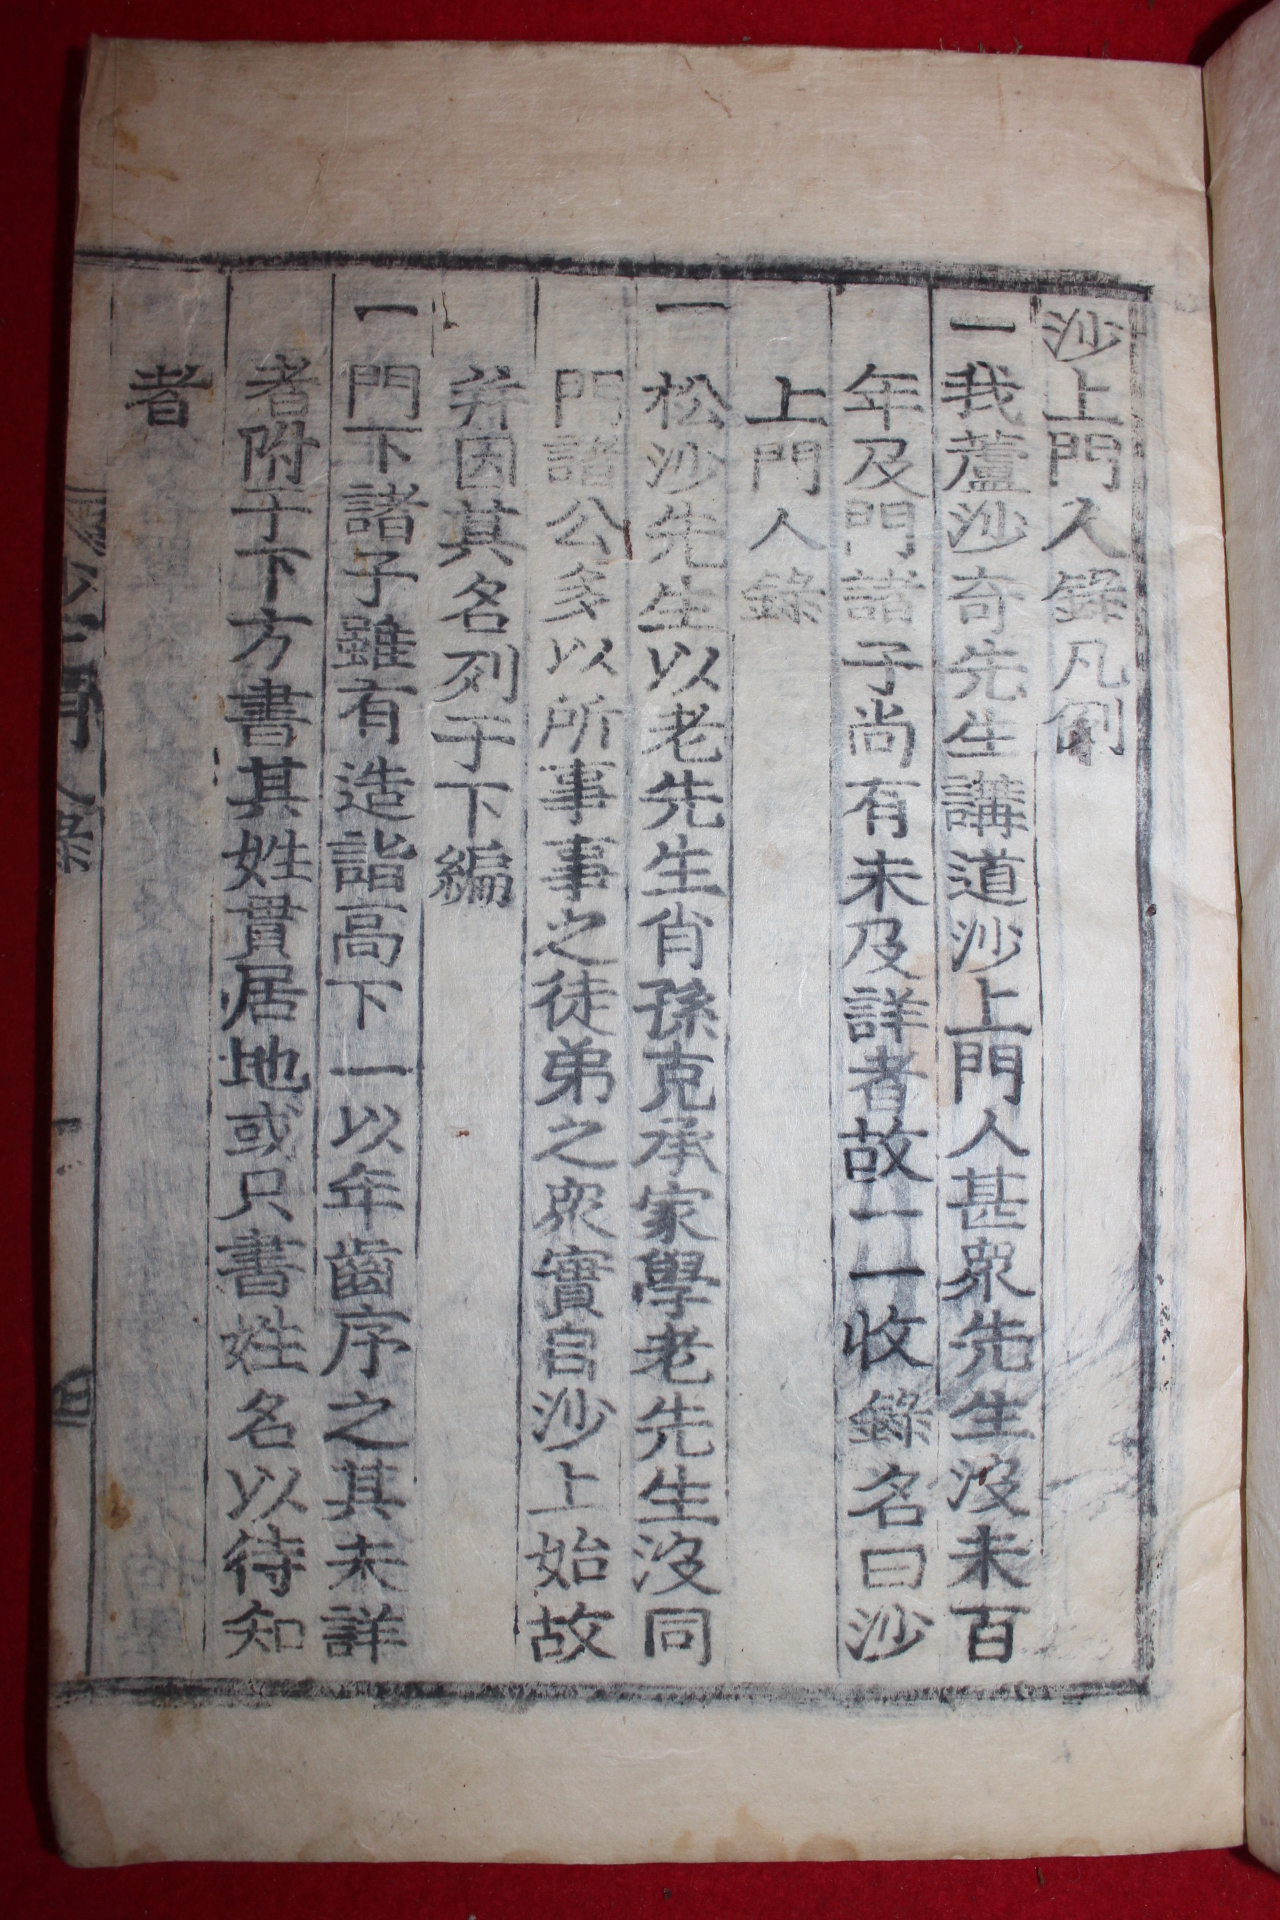 沙上門人錄凡例
一我蘆沙奇先生講道沙上門人甚衆先生沒未百
年及門諸子尚有未及詳者故一一收錄名曰沙
上門人錄
一松沙先生以老先生肖孫克承家學老先生沒同
門諸公多以所事事之徒弟之衆實自沙上始故
并因其名列于下編
一門下諸子雖有造詣高下一以年齒序之其未詳
者附于下方書其姓貫居地或只書姓名以待知
者
沙上門人錄